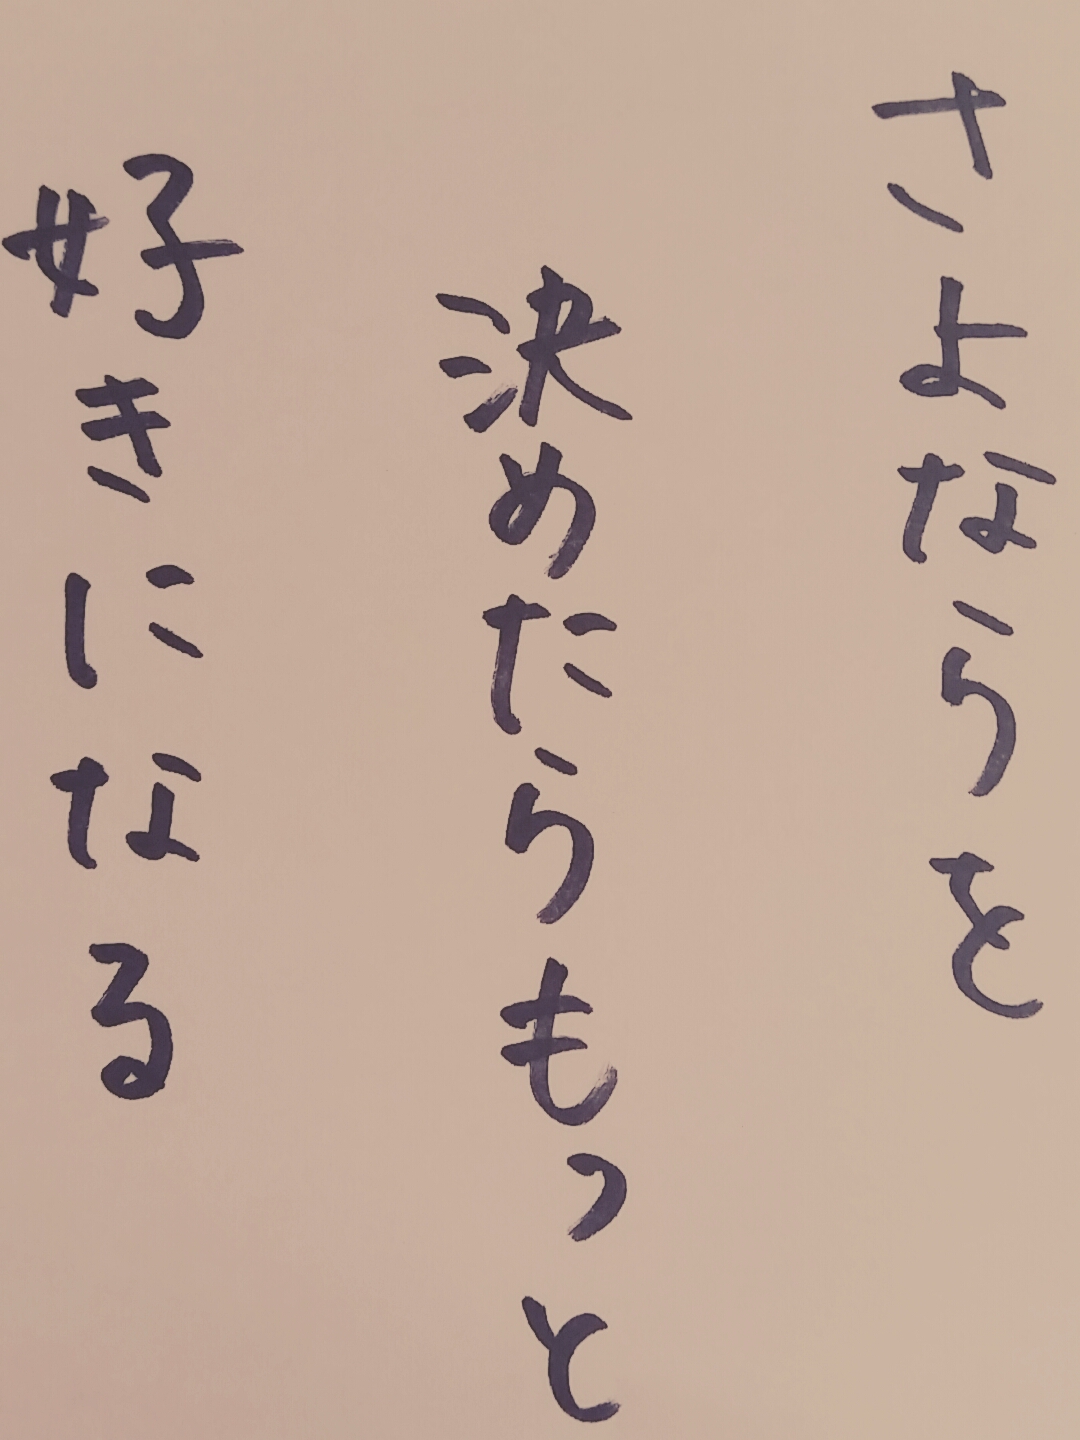 さよならを
決めたらもっと
好きになる